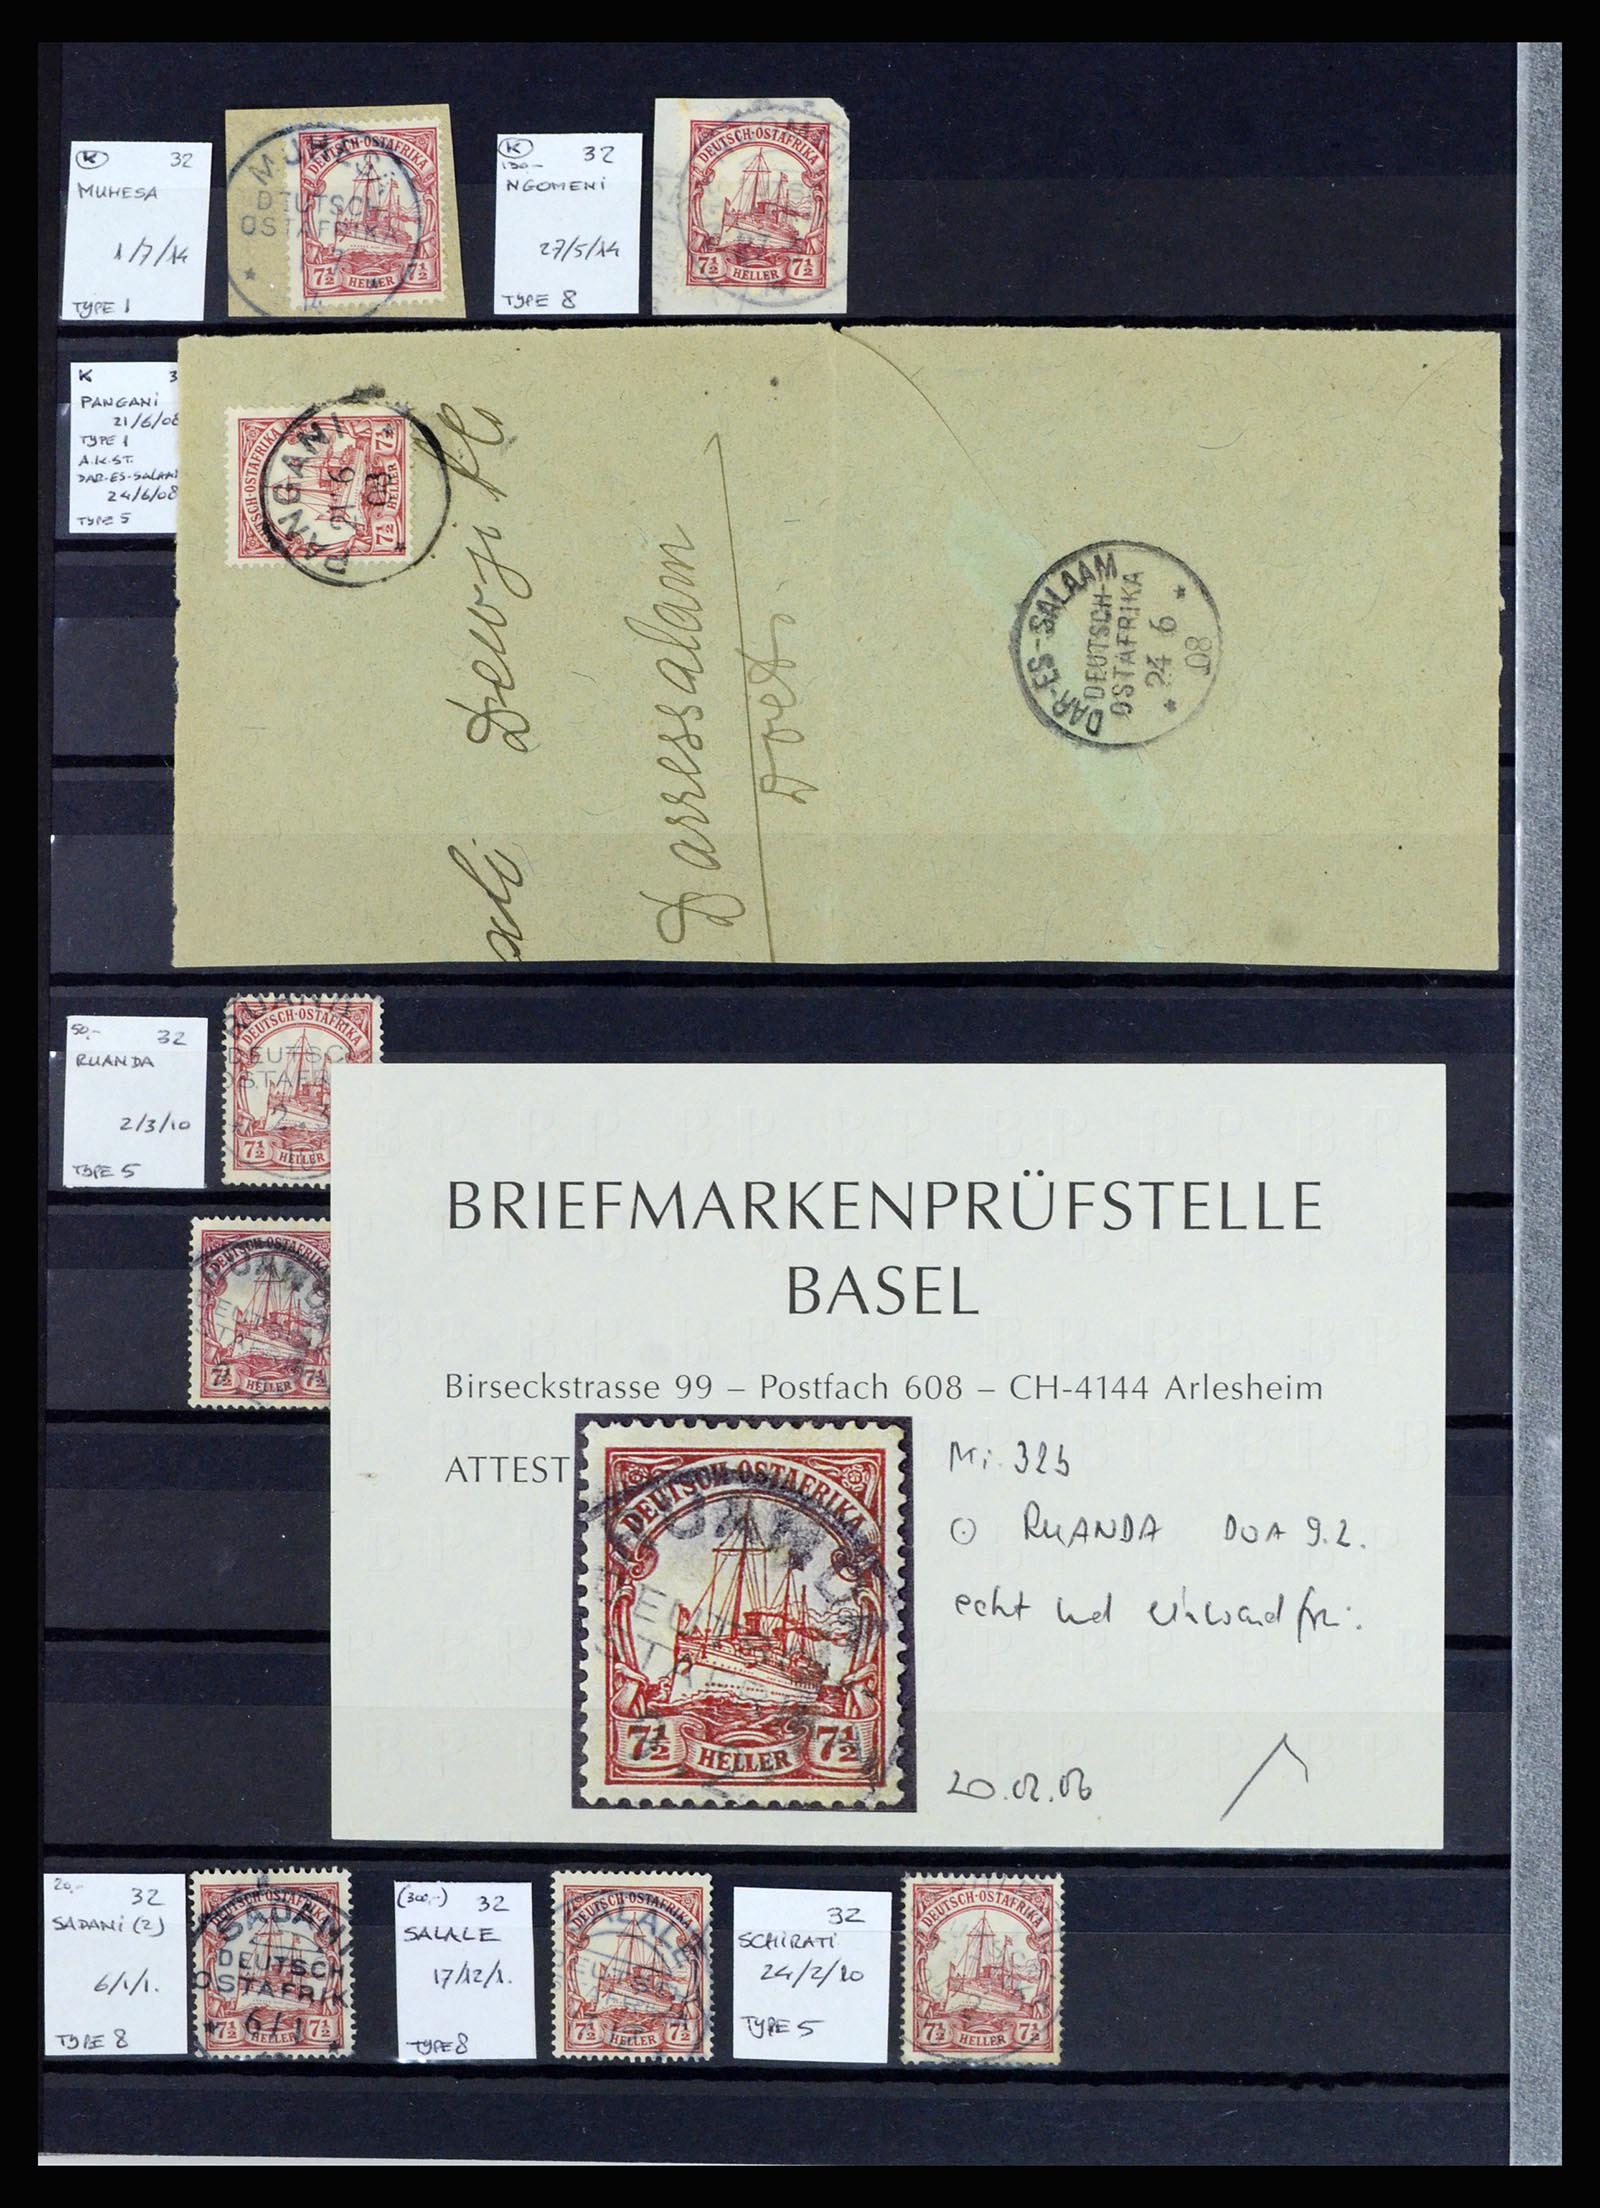 K 32
MUHESA
1/7/14
TYPE 1
MUHESA
DEUTSCH
OSTAFRIKA
14
DEUTSCH-OSTAFRIKA
7½ HELLER 7½
K 32
130,-
NGOMENI
27/5/14
TYPE 8
DEUTSCH-OSTAFRIKA
7½ HELLER 7½
K 3
PANGANI
21/6/08
TYPE 1
A.K.ST.
DAR-ES-SALAAM
24/6/08
TYPE 5
DEUTSCH-OSTAFRIKA
7½ HELLER 7½
PANGANI
21 6
08
ali Dewji
Daressalam
DAR-ES-SALAAM
DEUTSCH-
OSTAFRIKA
24 6
08
50,- 32
RUANDA
2/3/10
TYPE 5
DEUTSCH-OSTAFRIKA
DEUTSC
OSTAFR
2. 3
10
7½ HELLER
DEUTSCH-OSTAFRIKA
7½ HELLER 7½
BRIEFMARKENPRÜFSTELLE
BASEL
Birseckstrasse 99 – Postfach 608 – CH-4144 Arlesheim
ATTEST
DEUTSCH-OSTAFRIKA
7½ HELLER 7½
Mi. 32b
RUANDA DOA 9.2.
echt und einwandfrei.
20.02.06
20,- 32
SADANI (2)
6/1/1.
TYPE 8
DEUTSCH-OSTAFRIKA
SADANI
DEUTSCH
OSTAFRIK
6/1
7½ HELLER 7½
(300,-) 32
SALALE
17/12/1.
TYPE 8
DEUTSCH-OSTAFRIKA
SALALE
7½ HELLER 7½
32
SCHIRATI
24/2/10
TYPE 5
DEUTSCH-OSTAFRIKA
7½ HELLER 7½